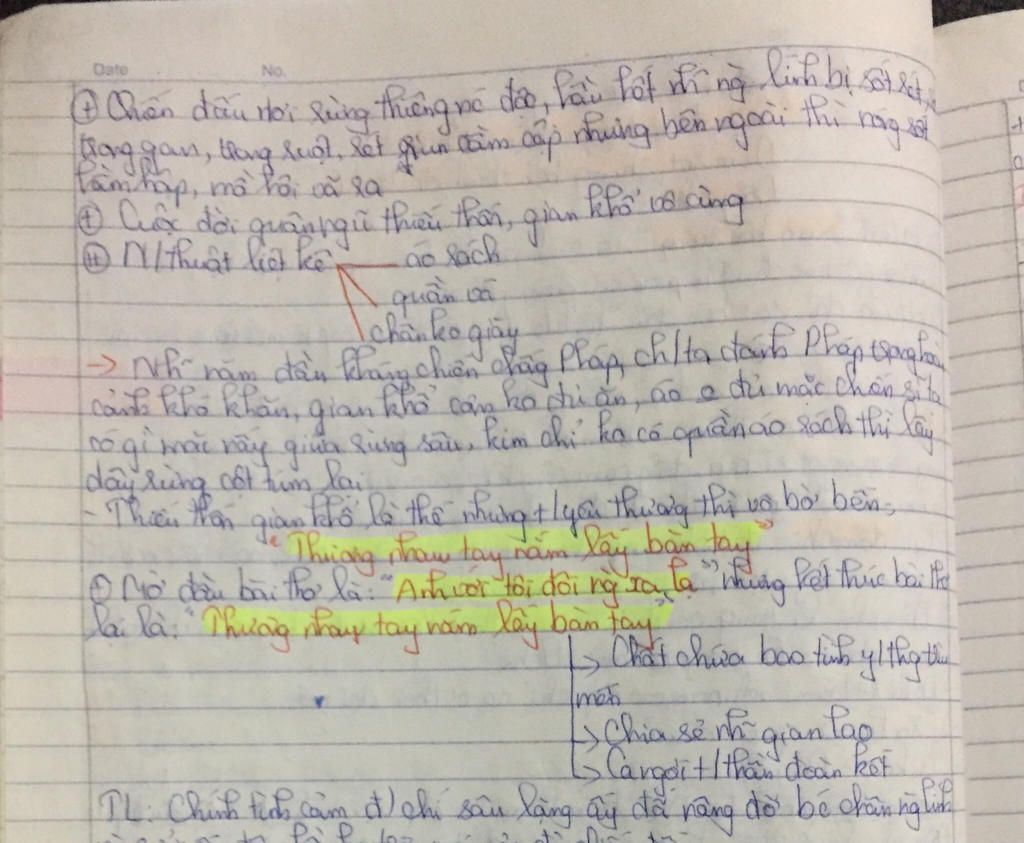 Date No.
⊕ Chiến đấu nơi rừng thiêng nc độc, hầu hết nh~ ng lính bị sốt rét,
trong gan, trong ruột, rét run cầm cập nhưng bên ngoài thì nóng sốt
hầm hập, mồ hôi cứ ra
⊕ Cuộc đời quân ngũ thiếu thốn, gian khổ vô cùng
⊕ N/thuật liệt kê áo rách
quần vá
chân ko giày
→ Nh~ năm đầu kháng chiến chống Pháp, ch/ta đánh Pháp trong hoàn
cảnh khó khăn, gian khổ cơm ko đủ ăn, áo đủ mặc chiến sĩ ta
có gì mặc nấy giữa rừng sâu, kim chỉ ko có quần áo rách thì lấy
dây rừng cột túm lại
- Thiếu thốn gian khổ là thế nhưng t/yêu thương thì vô bờ bến:
"Thương nhau tay nắm lấy bàn tay"
⊕ Mở đầu bài thơ là: "Anh với tôi đôi ng xa lạ" nhưng kết thúc bài thơ
lại là: "Thương nhau tay nắm lấy bàn tay"
↳ Chất chứa bao tình y/thg
mến
↳ Chia sẻ nh~ gian lao
↳ Ca ngợi t/thần đoàn kết
TL: Chính tình cảm đ/chí sâu lặng ấy đã nâng đỡ bc chân ng lính